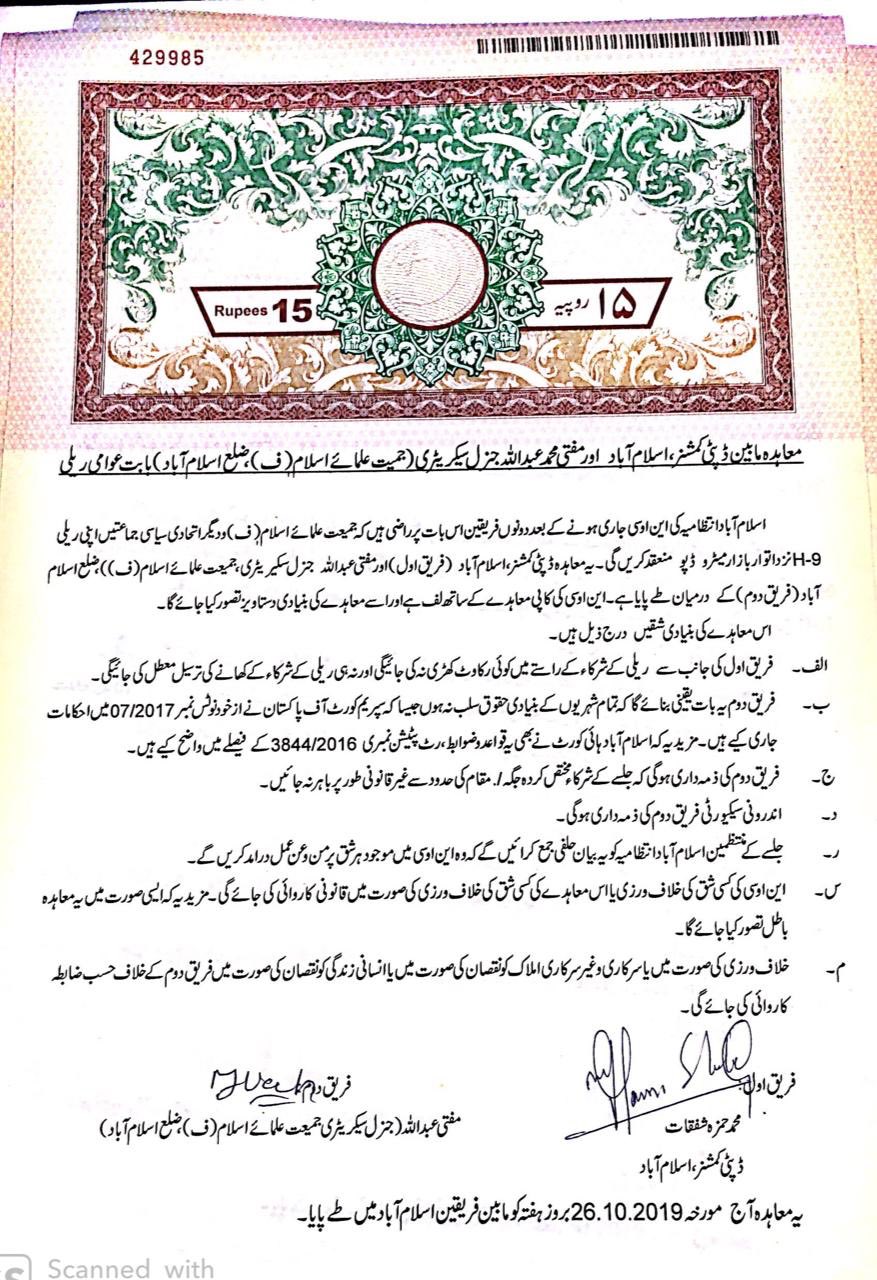 429985
Rupees 15
۱۵ روپیہ
معاہدہ مابین ڈپٹی کمشنر، اسلام آباد اور مفتی محمد عبداللہ جنرل سیکریٹری (جمیت علمائے اسلام (ف)، ضلع اسلام آباد) بابت عوامی ریلی
اسلام آباد انتظامیہ کی این او سی جاری ہونے کے بعد دونوں فریقین اس بات پر راضی ہیں کہ جمیعت علمائے اسلام (ف) و دیگر اتحادی سیاسی جماعتیں اپنی ریلی
H-9 نزد اتوار بازار میٹرو ڈپو منعقد کریں گی۔ یہ معاہدہ ڈپٹی کمشنر، اسلام آباد (فریق اول) اور مفتی عبداللہ جنرل سکیریٹری، جمیعت علمائے اسلام (ف))، ضلع اسلام
آباد (فریق دوم) کے درمیان طے پایا ہے۔ این او سی کی کاپی معاہدے کے ساتھ لف ہے اور اسے معاہدے کی بنیادی دستاویز تصور کیا جائے گا۔
اس معاہدے کی بنیادی شقیں درج ذیل ہیں۔
الف۔ فریق اول کی جانب سے ریلی کے شرکاء کے راستے میں کوئی رکاوٹ کھڑی نہ کی جائیگی اور نہ ہی ریلی کے شرکاء کے کھانے کی ترسیل معطل کی جائیگی۔
ب۔ فریق دوم یہ بات یقینی بنائے گا کہ تمام شہریوں کے بنیادی حقوق سلب نہ ہوں جیسا کہ سپریم کورٹ آف پاکستان نے از خود نوٹس نمبر 07/2017 میں احکامات
جاری کیے ہیں۔ مزید یہ کہ اسلام آباد ہائی کورٹ نے بھی یہ قواعد و ضوابط، رٹ پٹیشن نمبری 3844/2016 کے فیصلے میں واضح کیے ہیں۔
ج۔ فریق دوم کی ذمہ داری ہوگی کہ جلسے کے شرکاء مختص کردہ جگہ /. مقام کی حدود سے غیر قانونی طور پر باہر نہ جائیں۔
د۔ اندرونی سیکیورٹی فریق دوم کی ذمہ داری ہوگی۔
ر۔ جلسے کے منتظمین اسلام آباد انتظامیہ کو یہ بیان حلفی جمع کرائیں گے کہ وہ این او سی میں موجود ہر شق پر من و عن عمل درامد کریں گے۔
س۔ این او سی کی کسی شق کی خلاف ورزی یا اس معاہدے کی کسی شق کی خلاف ورزی کی صورت میں قانونی کاروائی کی جائے گی۔ مزید یہ کہ ایسی صورت میں یہ معاہدہ
باطل تصور کیا جائے گا۔
م۔ خلاف ورزی کی صورت میں یا سرکاری و غیر سرکاری املاک کو نقصان کی صورت میں یا انسانی زندگی کو نقصان کی صورت میں فریق دوم کے خلاف حسب ضابطہ
کاروائی کی جائے گی۔
فریق اول
محمد حمزہ شفقات
ڈپٹی کمشنر، اسلام آباد
فریق دوم
مفتی عبداللہ (جنرل سیکریٹری جمیعت علمائے اسلام (ف)، ضلع اسلام آباد)
یہ معاہدہ آج مورخہ 26.10.2019 بروز ہفتہ کو مابین فریقین اسلام آباد میں طے پایا۔
Scanned with